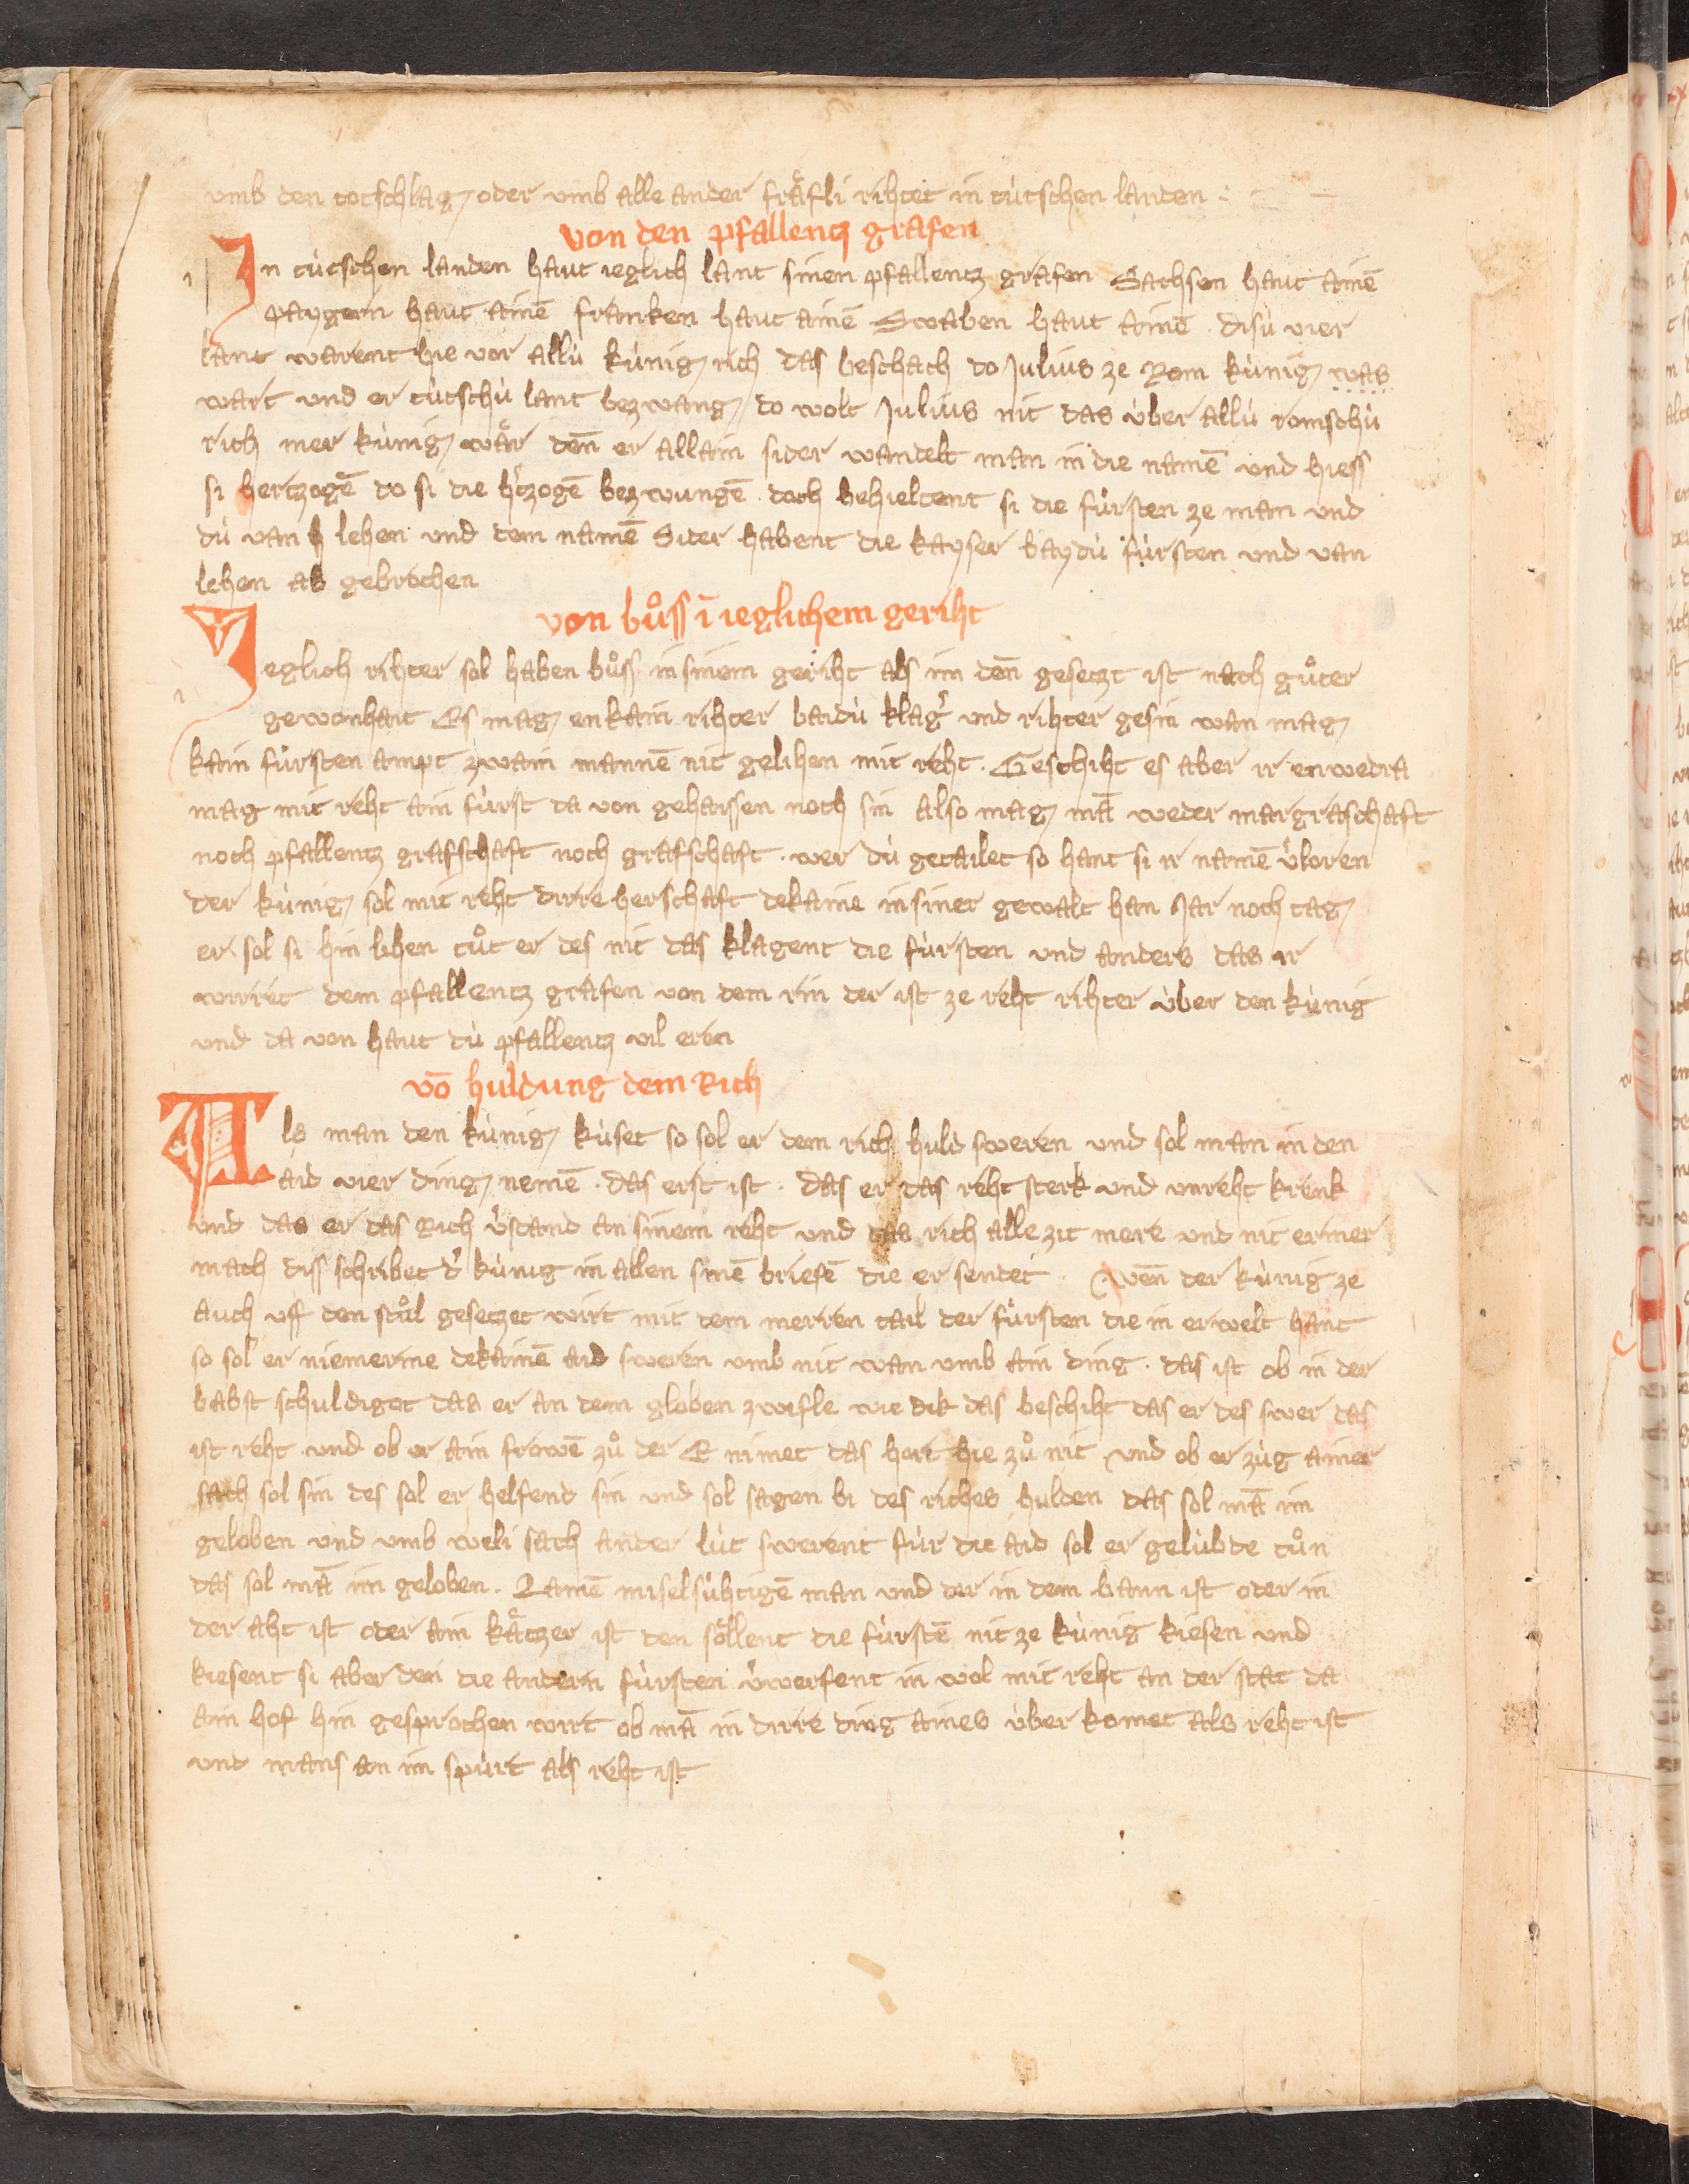 umb den totschlag oder umb alle ander fräfli rihtet in tütschen landen
von den pfallentz grafen
In tütschen landen haut ieglich lant sinen pfallentz grafen Sachsen haut ainē
paygern haut ainē franken haut ainē Swaben haut ainē . disü vier
lant warent hie vor allü künig rich das beschach do Julius ze Rom künig was
wart und er tütschü lant bezwang do wolt Julius nit das über allü römschü
rich mer künig wär deñ er allain sider wandelt man in die namē und hiess
si hertzogē do si die h'tzogē bezwungē doch behieltent si die fürsten ze man und
dü van lehen und dem namē Sider habent die kayser baydü fürsten und van
lehen ab gebrochen
von bůss ī ieglichem geriht
Ieglich rihter sol haben bůss in sinem geriht als im deñ gesetzt ist nach gůter
gewonhait Es mag enkain rihter baidü klag' und rihter gesin wan mag
kain fürsten ampt zwain mannē nit gelihen mit reht . Geschiht es aber ir enwedra
mag mit reht ain fürst da von gehaissen noch sin also mag mā weder margrafschaft
noch pfallentz grafschaft noch grafschaft . wer dü getailet so hant si ir namē v'loren
der künig sol mit reht dirre herschaft dekaine in siner gewalt han Jar noch tag
er sol si hin lihen tůt er des nit das klagent die fürsten und anders das ir
wirret dem pfallentz grafen von dem rin der ist ze reht rihter über den künig
und da von haut dü pfallentz vil eren
vō huldung dem Rich
Als man den künig küset so sol er dem rich huld sweren und sol man in den
aid vier ding nemē . das erst ist . das er das reht sterk und unreht krenk
und das er das Rich v'stand an sinem reht und das rich alle zit mere und nit ermer
mach diss schribet d' künig in allen sinē briefē die er sendet . Weñ der künig ze
auch uff den stůl gesetzet wirt mit dem merren tail der fürsten die in erwelt hant
so sol er niemerme dekainē aid sweren umb nit wan umb ain ding . das ist ob in der
babst schuldiget das er an dem globen zwifle wie dik das beschiht das er des swer das
ist reht und ob er ain frowē zů der E nimet das hört hie zů nit und ob er züg ainer
sach sol sin des sol er helfend sin und sol sagen bi des riches hulden das sol mā im
geloben und umb weli sach ander lüt swerent für die aid sol er gelübde tůn
das sol mā im geloben . Lamē miselsühtigē man und der in dem bann ist oder in
der aht ist oder ain kätzer ist den söllent die fürstē nit ze künig kiesen und
kiesent si aber den die andern fürsten v'werfent in wol mit reht an der stat da
ain hof hin gesprochen wirt ob mā in dirre ding aines über komet als reht ist
und mans an im spürt als reht ist